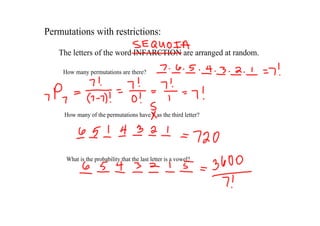 Permutations with restrictions:
SEQUOIA
The letters of the word INFARCTION are arranged at random.
How many permutations are there? 7. 6. 5. 4. 3. 2. 1 = 7!
7P7 = 7!/(7-7)! = 7!/0! = 7!/1 = 7!
S
How many of the permutations have as the third letter?
6 5 1 4 3 2 1 = 720
What is the probability that the last letter is a vowel?
6 5 4 3 2 1 5 = 3600/7!